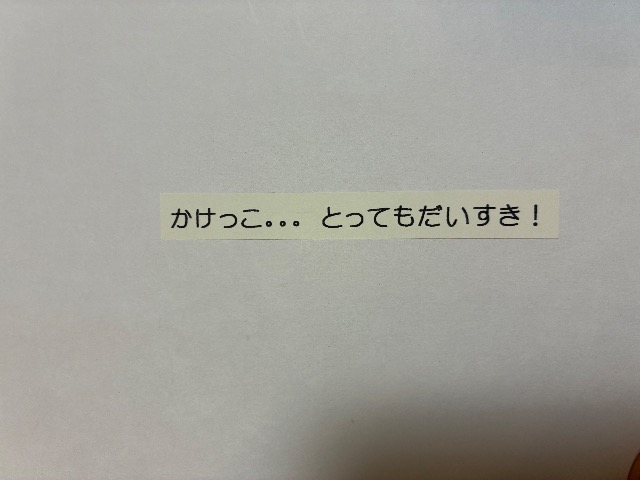 かけっこ。。。とってもだいすき！